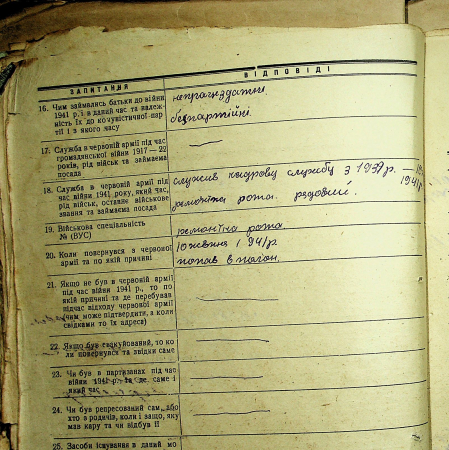 ЗАПИТАННЯ
ВІДПОВІДІ
16. Чим займались батьки до війни
1941 р. і в даний час та належ-
ність їх до комуністичної пар-
тії і з якого часу
непрацездатні.
безпартійні.
17. Служба в червоній армії під час
громадянської війни 1917 — 22
років, рід війська та займаєма
посада
18. Служба в червоній армії під
час війни 1941 року, який час,
рід військ, останнє військове
звання та займаєма посада
служив кадрову службу з 1939 р. —
1941 р.
ремонтна рота. рядовий.
19. Військова спеціальність
№ (ВУС)
ремонтна рота
20. Коли повернувся з червоної
армії та по якій причині
10 жовтня 1941 р
попав в полон.
21. Якщо не був в червоній армії
під час війни 1941 р., то по
якій причині та де перебував
підчас відходу червоної армії
(чим може підтвердити, а коли
свідками то їх адреса)
22. Якщо був евакуйований, то ко
ли повернувся та звідки саме
23. Чи був в партизанах під час
війни 1941 р. та де саме і
який час
24. Чи був репресований сам або
хто в родичів, коли і защо, яку
мав кару та чи відбув її
25. Засоби існування в даний мо